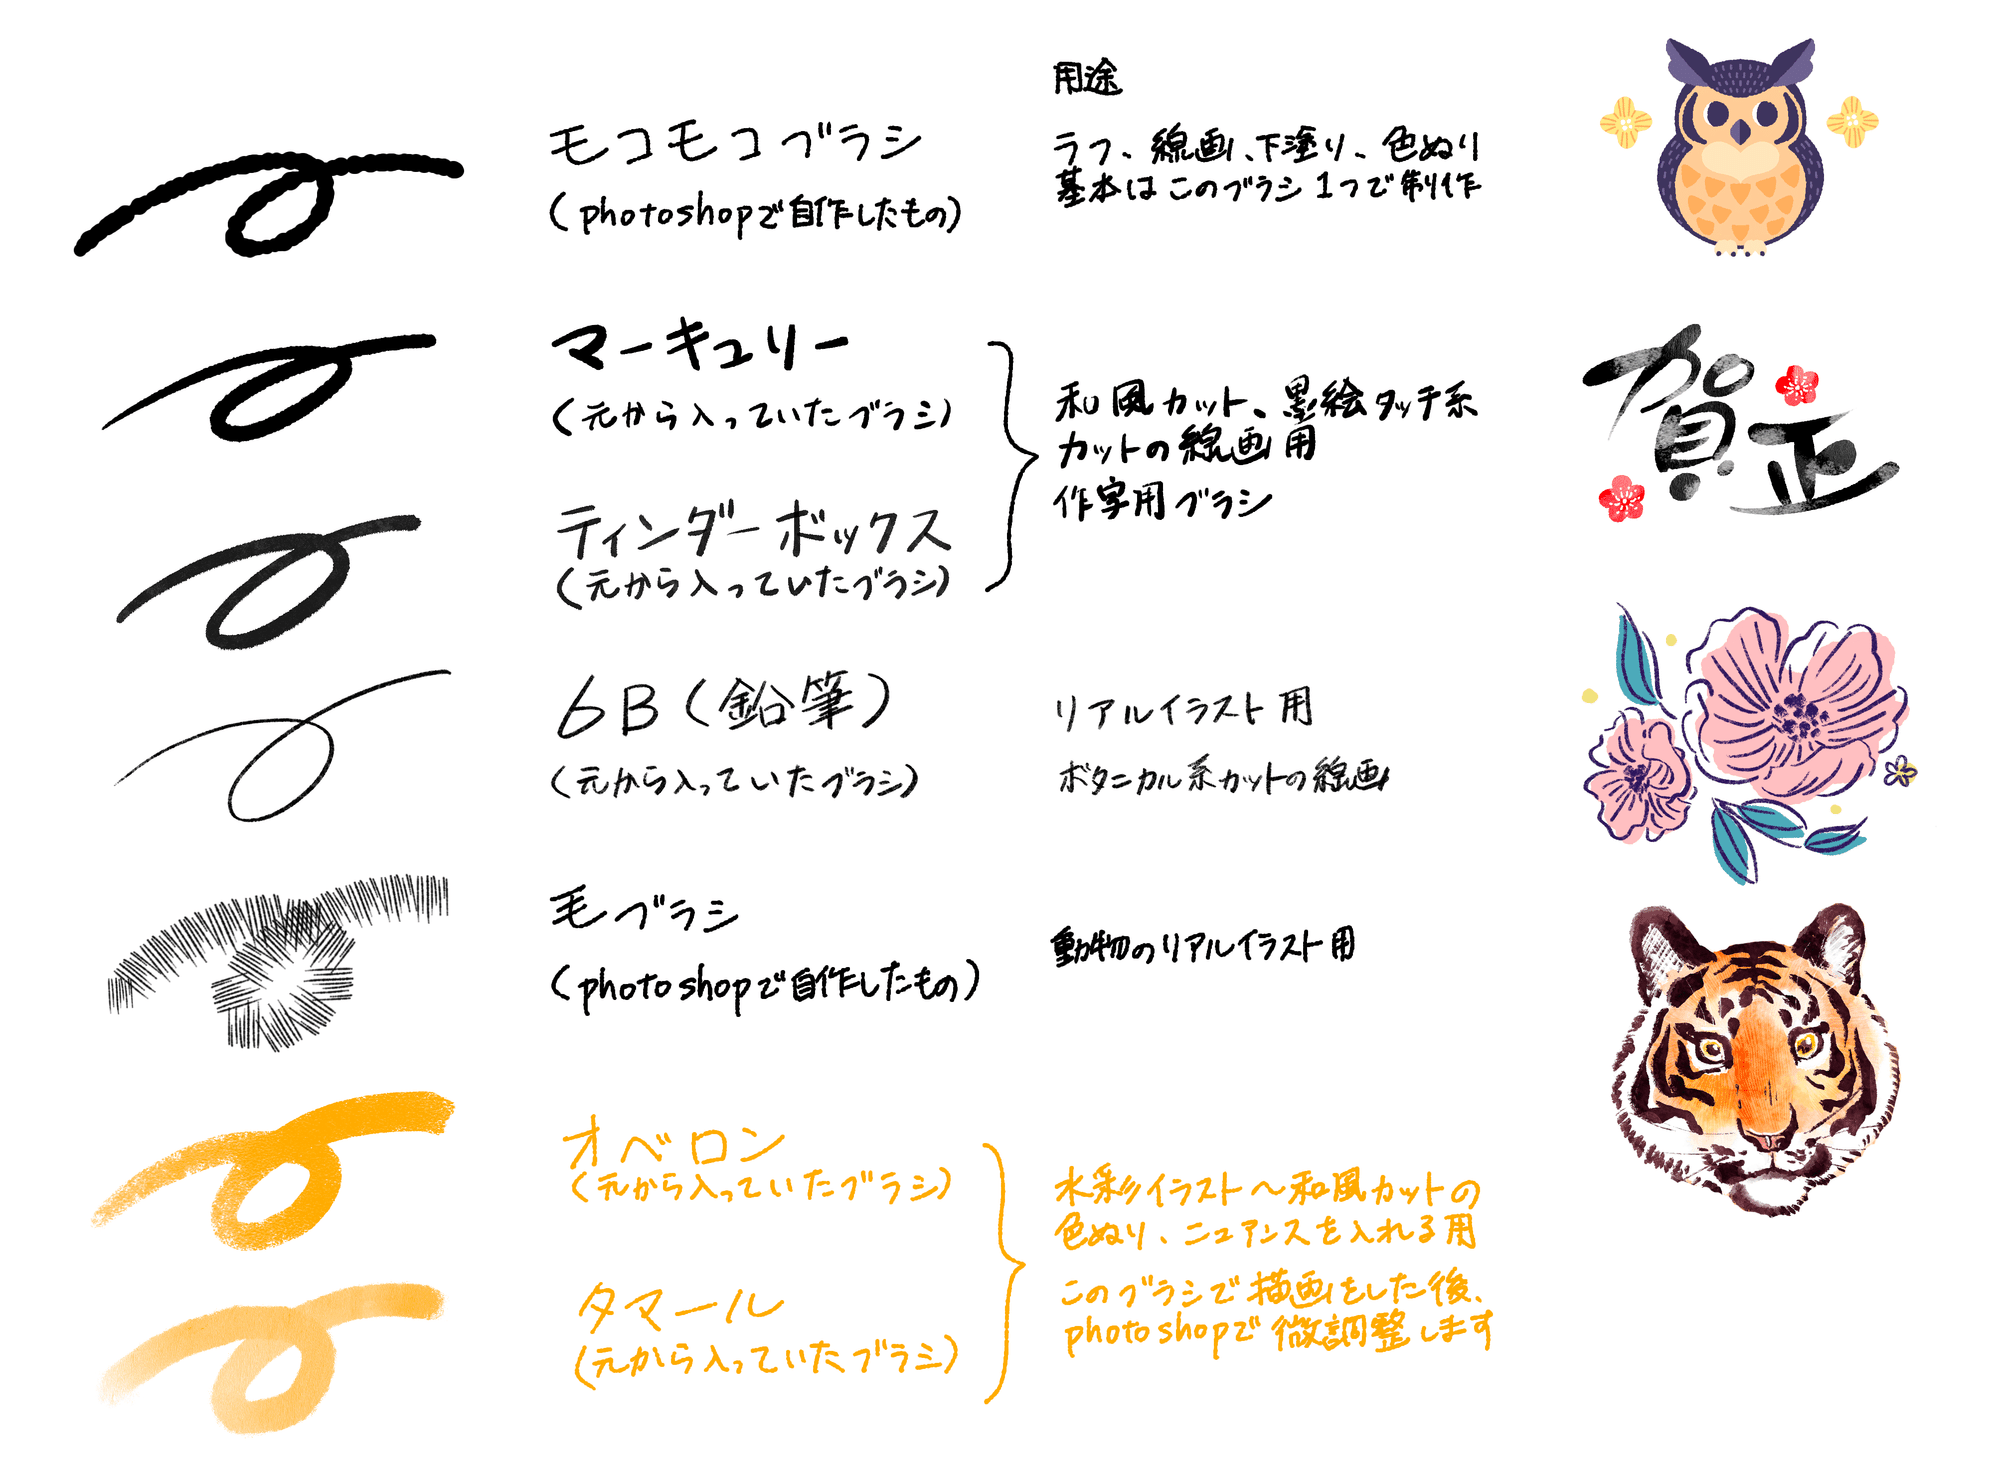 用途
モコモコブラシ
(photoshopで自作したもの)
ラフ、線画、下塗り、色ぬり
基本はこのブラシ1つで制作
マーキュリー
(元から入っていたブラシ)
ティンダーボックス
(元から入っていたブラシ)
和風カット、墨絵タッチ系
カットの線画用
作字用ブラシ
賀正
6B(鉛筆)
(元から入っていたブラシ)
リアルイラスト用
ボタニカル系カットの線画
毛ブラシ
(photoshopで自作したもの)
動物のリアルイラスト用
オベロン
(元から入っていたブラシ)
タマール
(元から入っていたブラシ)
水彩イラスト〜和風カットの
色ぬり、ニュアンスを入れる用
このブラシで描画をした後、
photoshopで微調整します